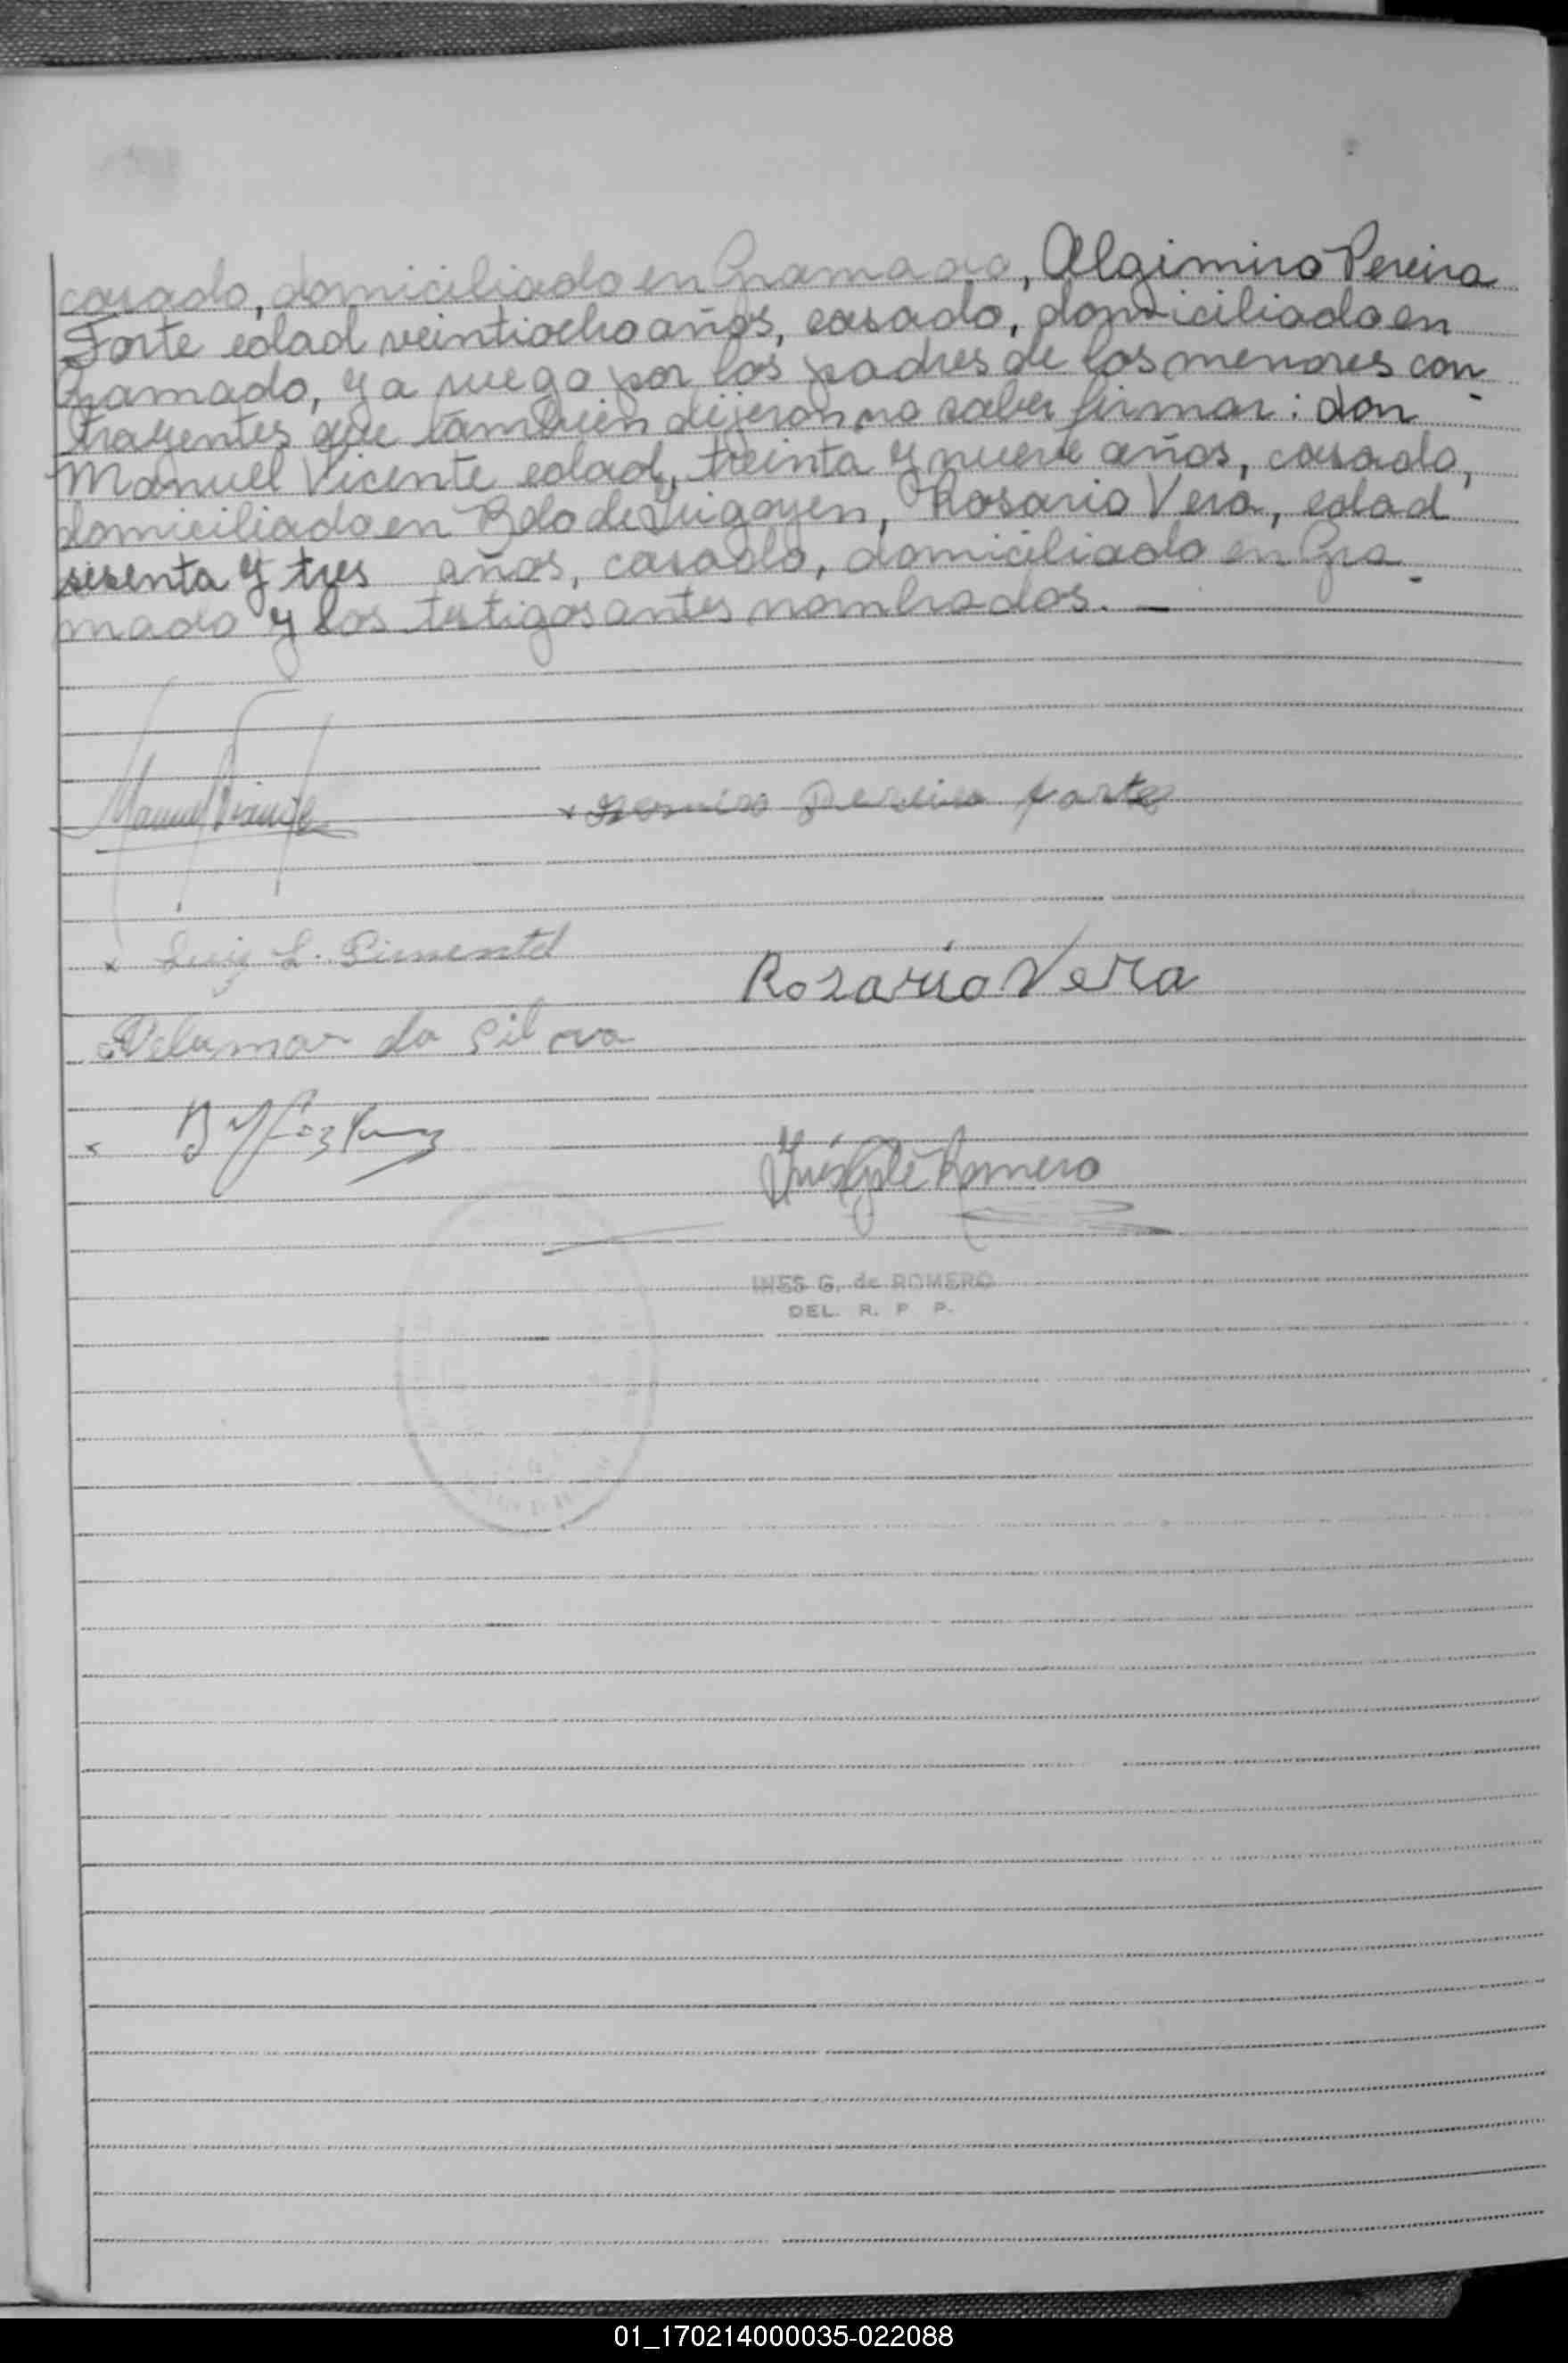 casado, domiciliado en Gramado, Algimiro Pereira
Forte edad veintiocho años, casado, domiciliado en
Gramado, y a ruego por los padres de los menores con
trayentes que también dijeron no saber firmar: don
Manuel Vicente edad, treinta y nueve años, casado,
domiciliado en Bdo de Irigoyen, Rosario Vera, edad
sesenta y tres años, casado, domiciliado en Gra-
mado y los testigos antes nombrados. —
Manuel
x Pereira forte
x Luiz L. Pimentel
Rozario Vera
da Silva
x
Romero
INES G. de ROMERO
DEL. R. P P.
01_170214000035-022088